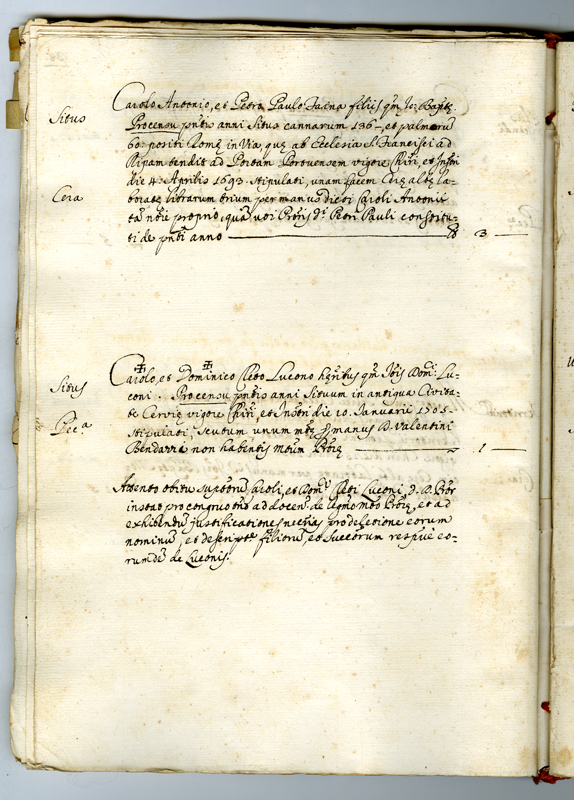 Situs
Carolo Antonio, et Petro Paulo Facna filiis qm Jo: Baptæ
Pro censu pntis anni Situs cannarum 136-, et palmorū
60: positi Romę in Via, quę ab Ecclesia S. Francisci ad
Ripam tendit ad Portam Portuensem vigore Chiri, et Instri
die 4. Aprilis 1693. stipulati, unam facem Cerę albę la-
Cera
boratę librarum trium per manus dicti Caroli Antonii
tā nōe proprio, quā uti Pris di Petri Pauli constitu-
ti de pnti anno — ℔ 3 —
Situs
Carolo, et Dominico Cleto Lucono hæribus qm Dom: Lu-
coni. Pro censu pntis anni Situum in antiqua Civita-
te Cervię vigore Chiri, et Instri die 10. Januarii 1705-
Pec.a
stipulati, scutum unum mtę p manus D. Valentini
Bendarra non habentis mtum Pris — 1 —
Attento obitu Caroli, et Domci Cleti Luconi, D.
instat pro congruo ad docen. de et ad
exhibendū justificationes necrias pro deletione eorum
nominū, et descriptę filiorū, et Successorum respue eo-
rumdē de Luconis.